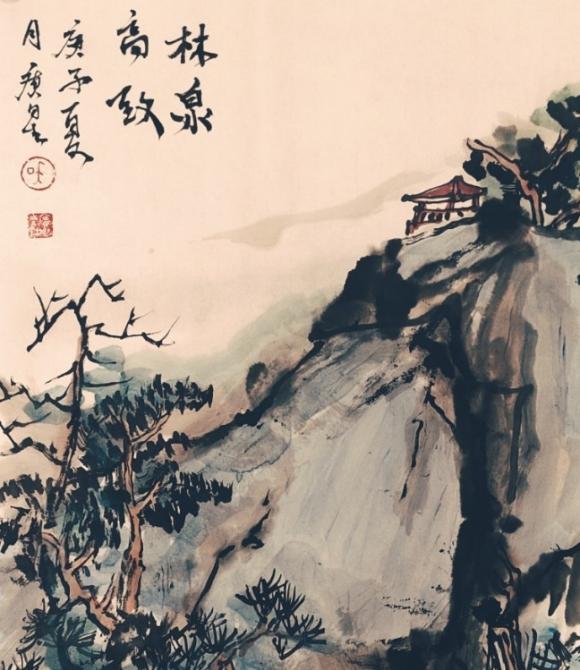 林泉
高致
庚子夏
月康